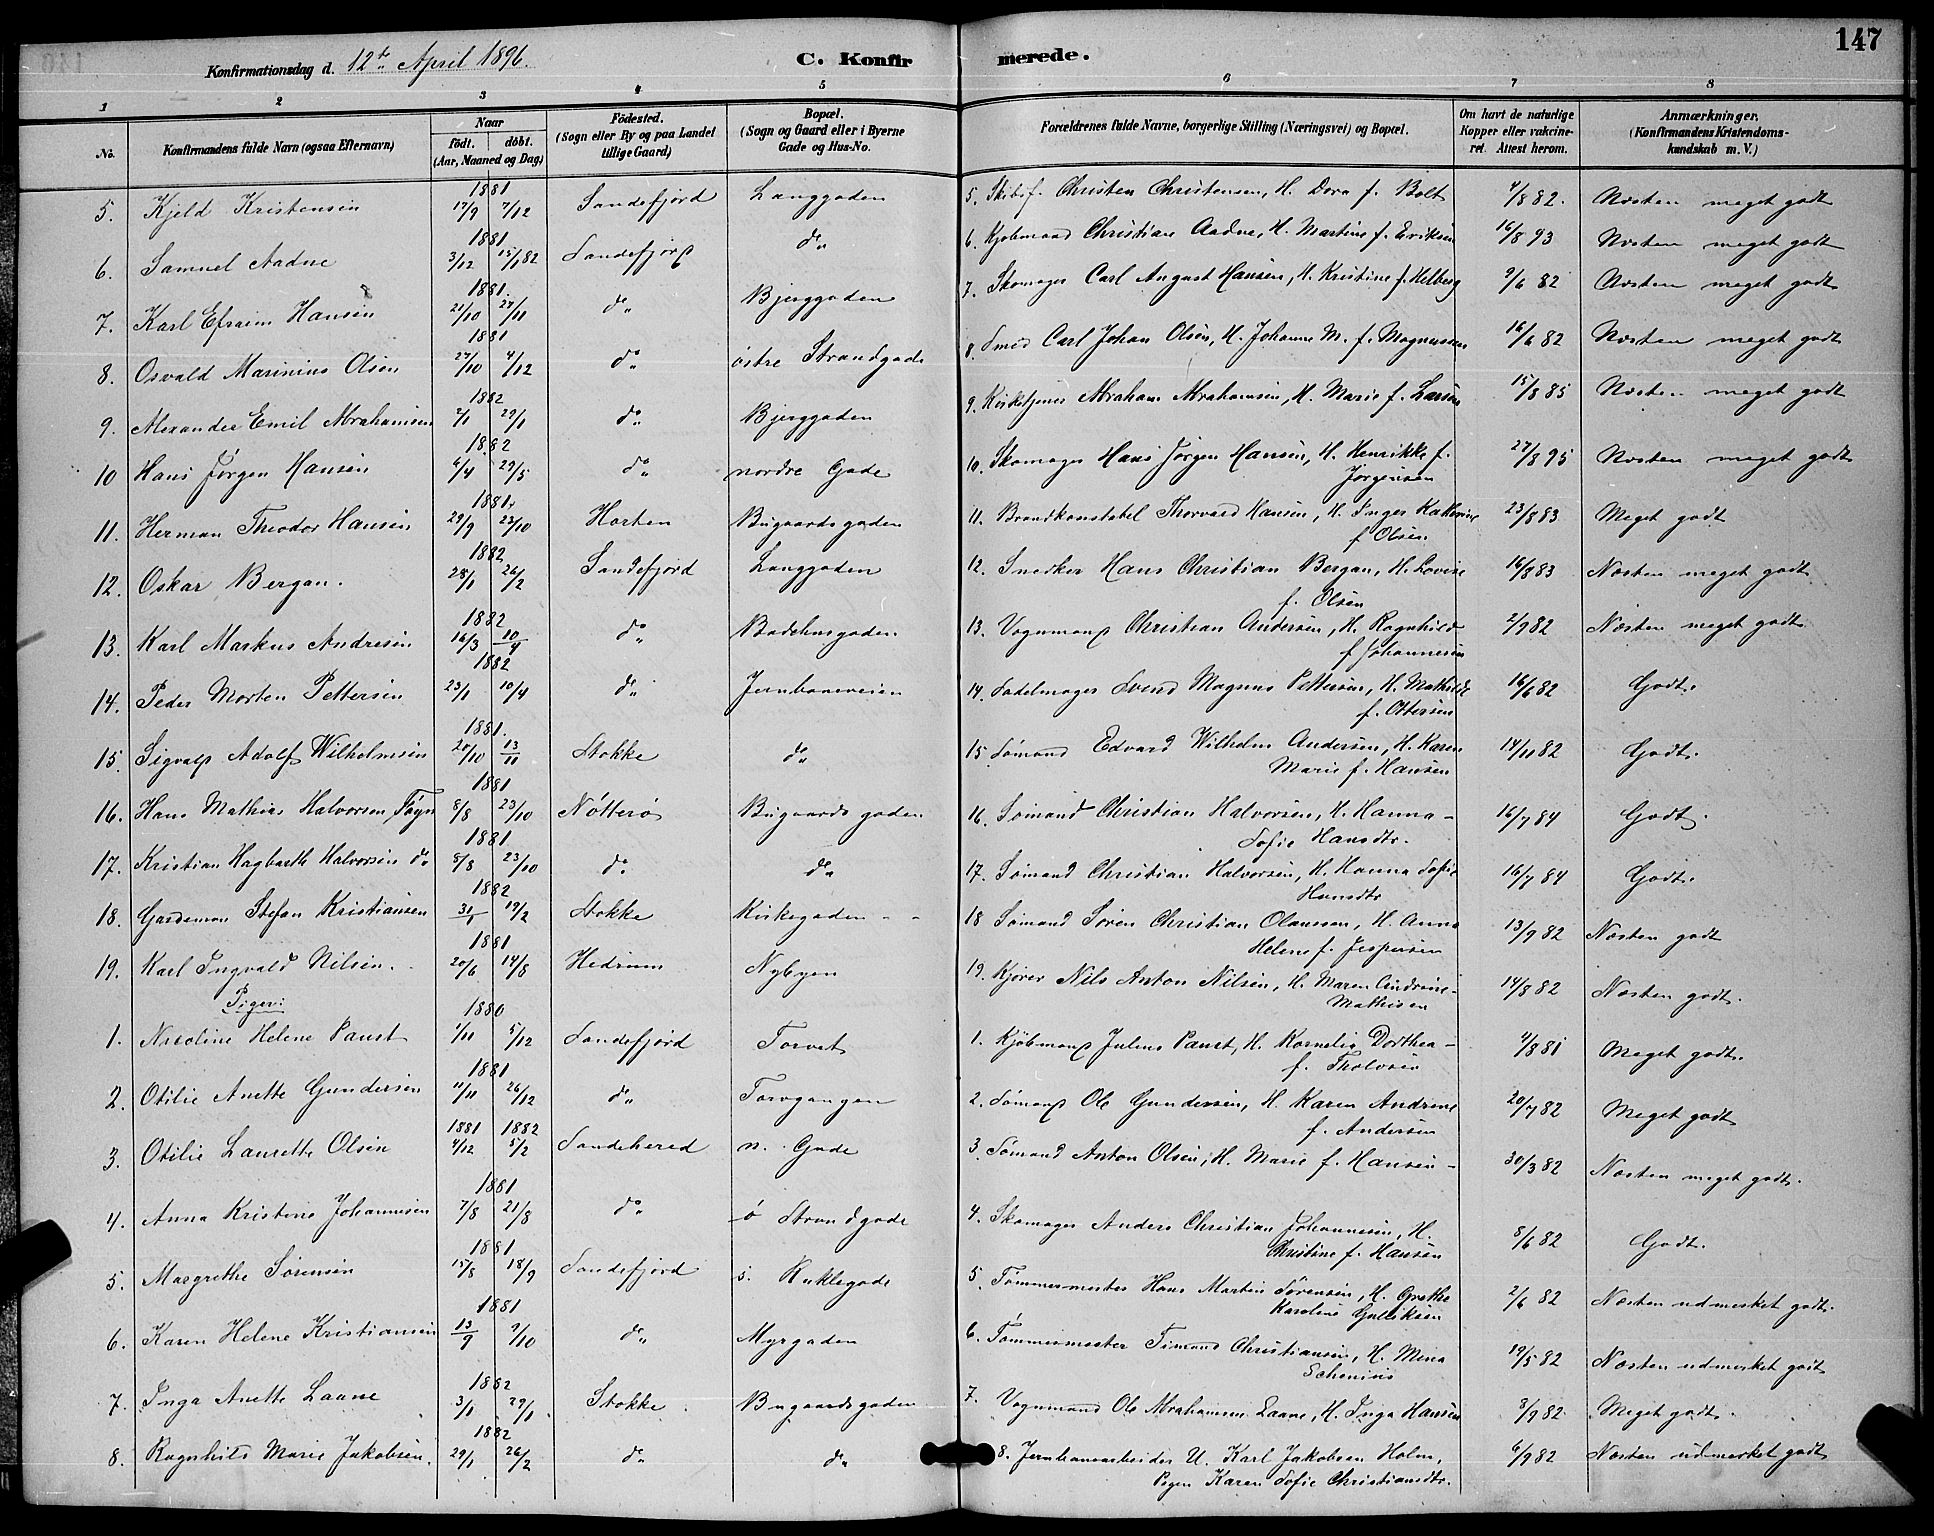 147
Konfirmationsdag d. 12te April 1896.
C. Konfirmerede.
1 2 3 4 5 6 7 8
No. | Konfirmandens fulde Navn (ogsaa Efternavn) | Naar født. døbt. (Aar, Maaned og Dag) | Fødested. (Sogn eller By og paa Landet tillige Gaard) | Bopæl. (Sogn og Gaard eller i Byerne Gade og Hus-No. | Forældrenes fulde Navne, borgerlige Stilling (Næringsvei) og Bopæl. | Om havt de naturlige Kopper eller vakcineret. Attest herom. | Anmærkninger. (Konfirmandens Kristendomskundskab m. V.)
5. Kjeld Kristensen 1881 17/9 7/12 Sandefjord Langgaden 5. Skibsf. Christen Christensen, H. Dora f. Bolt 4/8 82. Næsten meget godt
6. Samuel Aadne 1881 3/12 15/1 82 Sandefjord do 6. Kjøbmand Christian Aadne, H. Martine f. Eriksen 16/8 93 Næsten meget godt
7. Karl Efraim Hansen 1881. 21/10 27/11 do Bjerggaden 7. Skomager Carl August Hansen, H. Kristine f. Helberg 9/6 82 Næsten meget godt
8. Osvald Marinius Olsen 1881 27/10 4/12 do østre Strandgade 8. Smed Carl Johan Olsen, H. Johanne M. f. Magnussen 16/6 82 Næsten meget godt
9. Alexander Emil Abrahamsen 1882 2/1 29/1 do Bjerggaden 9. Kirketjener Abraham Abrahamsen, H. Marie f. Larsen 15/8 85 Næsten meget godt
10 Hans Jørgen Hansen 1882 6/4 29/5 do nordre Gade 10. Skomager Hans Jørgen Hansen, H. Henrikke f. Jørgensen 27/8 95 Næsten meget godt
11. Herman Theodor Hansen 1881. 29/9 23/10 Horten Bugaardsgaden 11. Brandkonstabel Thorvard Hansen, H. Inger Kathrine f Olsen. 23/8 83 Meget godt
12. Oskar Bergan. 1882 28/1 26/2 Sandefjord Langgaden 12. Snedker Hans Christian Bergan, H. Lovise f. Olsen 16/8 83 Næsten meget godt
13. Karl Markus Andresen 1882 16/3 10/4 do Badehusgaden. 13. Vognmand Christian Andersen, H. Ragnhild f Johannesen 2/9 82 Næsten meget godt.
14. Peder Morten Pettersen 1882 23/1 10/4 do Jernbaneveien 14. Sadelmager Svend Magnus Pettersen, H. Mathilde f. Ottersen 16/6 82 Godt.
15. Sigvald Adolf Wilhelmsen 1881. 20/10 13/11 Stokke do 15 Sømand Edvard Wilhelm Andersen, H. Karen Marie f. Hansen 14/11 82 Godt.
16. Hans Mathias Halvorsen, Føyn 1881 8/8 23/10 Nøtterø Bugaardsgaden 16. Sømand Christian Halvorsen, H. Hanna Sofie Hansdtr. 16/7 84 Godt.
17. Kristian Hagbarth Halvorsen do 1881 8/8 23/10 do do 17. Sømand Christian Halvorsen, H. Hanna Sofie Hansdtr 16/7 84 Godt.
18. Gardeman Stefan Kristiansen 1882 31/1 19/2 Stokke Kirkegaden 18 Sømand Søren Christian Olaussen, H. Anna Helene f. Jespersen 13/9 82 Næsten godt
19. Karl Ingvald Nilsen. 1881 20/6 14/8 Hedrum Nybyen 19. Kjører Nils Anton Nilsen, H. Maren Andrine Mathisen 14/8 82 Næsten godt.
Piger:
1. Nicoline Helene Paust 1880 1/11 5/12 Sandefjord Torvet 1. Kjøbmand Julius Paust, H. Kornelie Dorthea f. Tholvsen 4/8 81 Meget godt.
2. Otilie Anette Gundersen 1881 11/11 26/12 do Torvgangen 2. Sømand Ole Gundersen, H. Karen Andrine f. Andersen 20/7 82 Meget godt
3. Otilie Laurette Olsen 1881 4/12 1882 5/2 Sandeherred n. Gade 3. Sømand Anton Olsen, H. Marie f. Hansen 30/3 82 Næsten meget godt.
4. Anna Kristine Johannesen 1881 7/8 21/8 do ø Strandgade 4. Skomager Anders Christian Johannesen, H. Christine f. Hansen 8/6 82 Godt.
5. Margrethe Sørensen 1881 15/8 18/9 Sandefjord s. Kuklegade 5. Tømmermester Hans Martin Sørensen, H. Grethe Karoline Gulliksen 2/6 82 Næsten udmerket godt.
6. Karen Helene Kristiansen 1881 13/9 9/10 do Myrgaden 6. Tømmermester Simand Christiansen, H. Mina Schenius 19/5 82 Næsten udmerket godt
7. Inga Anette Laane 1882 3/1 29/1 Stokke Bugaardsgaden 7. Vognmand Ole Abrahamsen Laane, H. Inga Hansen 8/9 82. Meget godt.
8. Ragnhild Marie Jakobsen. 1882 29/1 26/2 do do 8. Jernbanearbeider U. Karl Jakobsen Holm, Pigen Karen Sofie Christiansdtr. 6/9 82 Næsten udmerket godt